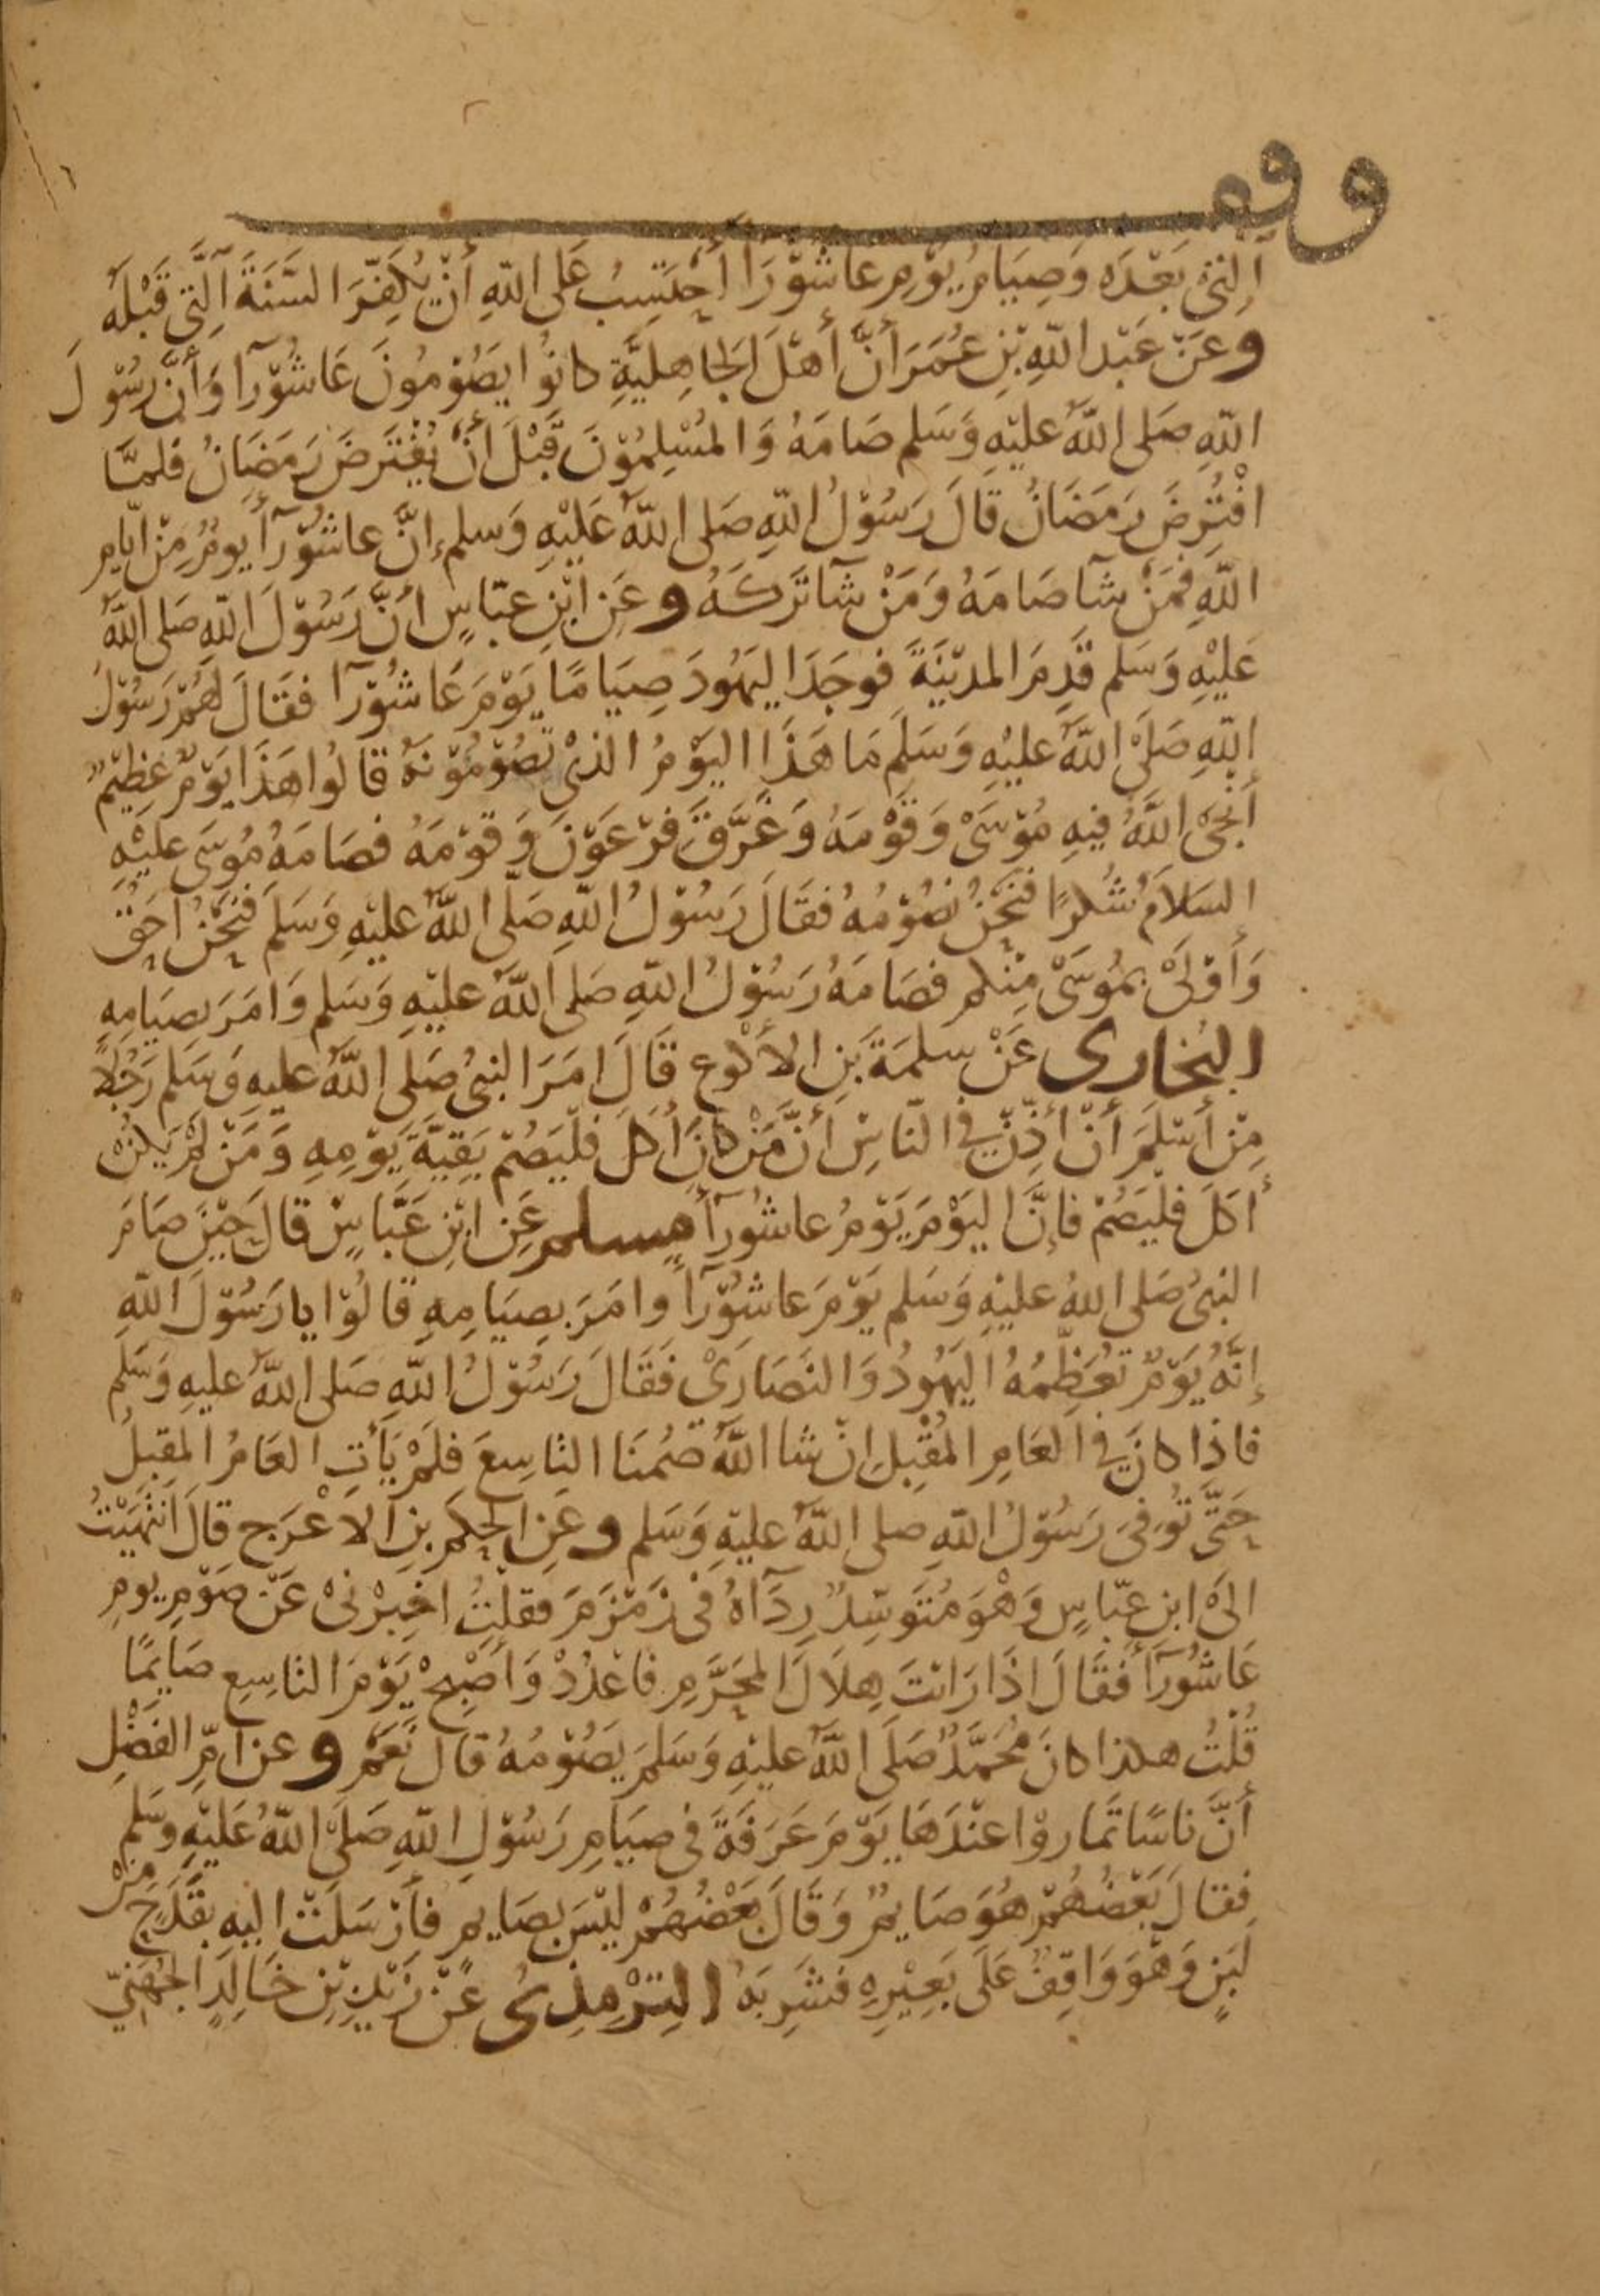 وقف
التي بَعْدَه وَصِيَامُ يَوْمِ عَاشُوْرَآأَ أَحْتَسِبُ عَلى اللهِ أَنْ يُكَفِّرَ السَّنَةَ الَّتِي قَبْلَهُ
وعَنْ عَبْدِ اللهِ بْنِ عُمَرَ أَنَّ أَهْلَ الجَاهِلِيَّةِ كانُوا يَصُوْمُونَ عَاشُوْرَآ وَأَنَّ رَسُوْلَ
اللهِ صَلى اللهُ عليْهِ وَسَلم صَامَهُ وَالمُسْلِمُوْنَ قَبْلَ أَنْ يُفْتَرَضَ رَمَضَانُ فَلمَّا
افْتُرِضَ رَمَضَانُ قَالَ رَسُوْلُ اللهِ صَلى اللهُ عَليْهِ وَسلم إنَّ عاشُوْرَآأَ يومٌ مِنْ ايّامِ
اللهِ فَمَنْ شآ صَامَهُ وَمَنْ شآ تَرَكَهُ وعَنِ ابْنِ عبّاسٍ أنَّ رَسُوْلَ اللهِ صَلى اللهُ
عَليْهِ وَسَلم قَدِمَ المدِيْنَةَ فوجَدَ اليَهُودَ صِيَامًا يَوْمَ عَاشُوْرَآ فقَالَ لهُمْ رَسُوْلُ
اللهِ صَلَّى اللهُ عليْهِ وَسَلَم مَا هَذَا اليَوْمُ الذيْ تَصُوْمُوْنَهُ قالُوا هَذَا يَوْمٌ عَظِيْمٌ
أَنْجَى اللهُ فِيهِ مُوْسَىْ وَقَوْمَهُ وَغَرَّقَ فِرْعَوْنَ وَقَوْمَهُ فصَامَهُ مُوسَى عليْهِ
السَلاَمُ شُكْرًا فنَحْنُ نَصُوْمُهُ فقَالَ رَسُوْلُ اللهِ صَلّى اللهُ عليْهِ وَسَلَم فنَحْنُ احَقُّ
وَأَوْلَىْ بمُوسَىْ مِنْكم فصَامَهُ رَسُوْلُ اللهِ صَلى اللهُ عليْهِ وَسَلم وَامَرَ بصيَامِهِ
البُخاري عَنْ سلمَةَ بنِ الأكْوَعِ قَالَ امَرَ النبيُ صَلى اللهُ عليهِ وَسَلم رَجُلاً
مِنْ أَسْلَمَ أَنْ أَذِّنْ في النّاسِ أَنَّ مَنْ كانَ أَكَلَ فلْيَصُمْ بَقِيَّةَ يَوْمِهِ وَمَنْ لمْ يَكُنْ
أَكَلَ فلْيَصُمْ فإنَّ اليَوْمَ يَوْمُ عاشُورَآأَ مسلم عَنِ ابْنِ عَبَّاسٍ قالَ حِيْنَ صَامَ
النبيُ صَلى اللهُ عليْهِ وَسَلم يَوْمَ عاشُوْرَآأَ وامَرَ بصِيَامِهِ قالُوْا يا رَسُوْلَ اللهِ
إنَّهُ يَوْمٌ تُعَظِّمُهُ اليَهُودُ وَالنصَارَىْ فَقَالَ رَسُوْلُ اللهِ صَلى اللهُ عليهِ وَسَلم
فاذا كانَ في العَامِ المُقْبِلِ انْ شا اللهُ صُمْنَا التاسِعَ فلَمْ يَأْتِ العَامُ المقبِلُ
حَتَّى تُوفىَ رَسُوْلُ اللهِ صلى اللهُ عليْهِ وَسَلم وعَنِ الحكَمِ بنِ الاعْرَجِ قالَ انْتَهَيْتُ
الىَ ابن عبّاسٍ وَهْوَ مُتَوَسّدٌ رِدَآهُ فى زَمْزَمَ فقلتُ اخبِرْنىْ عَنْ صَوْمِ يومِ
عَاشُوْرَآأَ فقَالَ اذَا رَايْتَ هِلاَلَ المحَرَّمِ فاعْدُدْ وَأَصْبِحْ يَوْمَ التاسِعِ صَايِمًا
قُلْتُ هكذا كانَ مُحَمَّدٌ صَلَى اللهُ عليْهِ وَسَلمَ يَصُوْمُهُ قالَ نَعَمْ وعن امِّ الفَضْلِ
أَنَّ ناسًا تمَاروْا عنْدَهَا يَوْمَ عَرَفَةَ فى صيَامِ رَسُوْلِ اللهِ صَلىَ اللهُ عَليْهِ وَسَلم
فقالَ بَعْضُهُمْ هُوَ صَايمٌ وَقَالَ بَعْضُهُمْ ليْسَ بصَايمٍ فأَرْسَلَتْ اليهِ بقَدَحٍ مِنْ
لَبَنٍ وَهْوَ وَاقِفٌ عَلَى بَعِيْرِهِ فشَرِبَهُ التِرْمِذِىُ عَنْ زَيْدِ بْنِ خَالِدٍ الجُهَنيّ